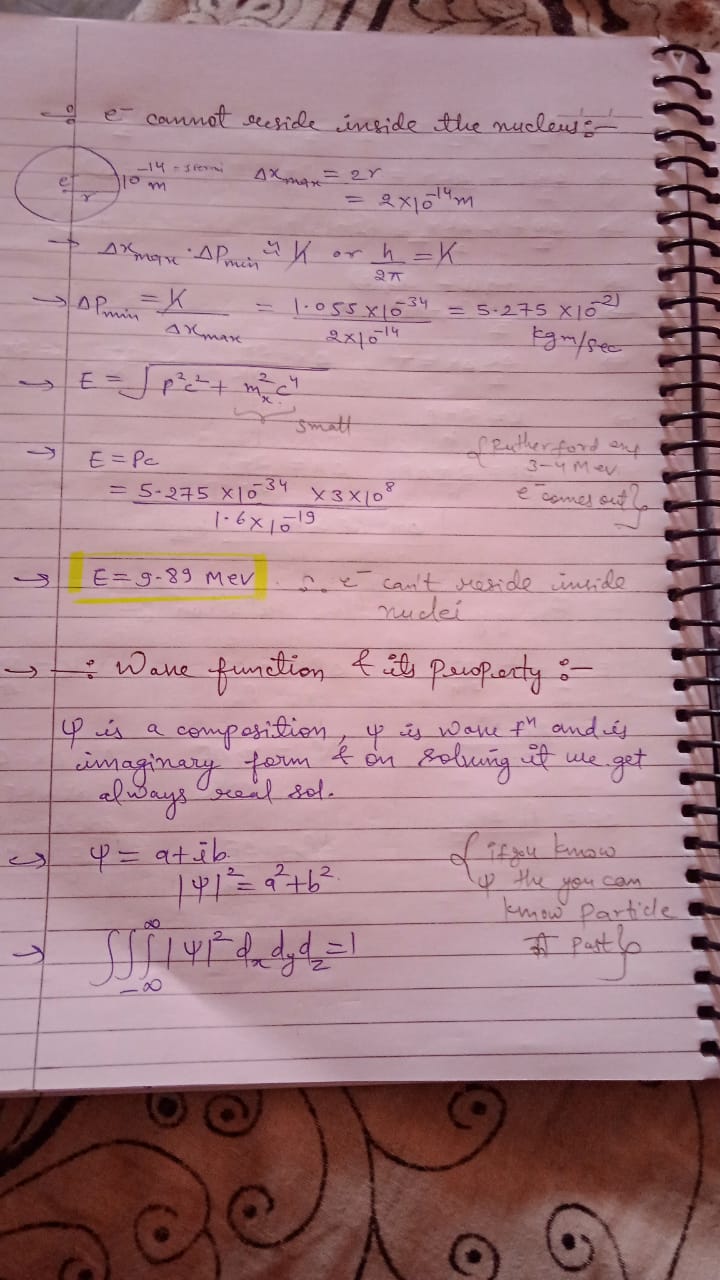 -: e⁻ cannot reside inside the nucleus:-
e⁻ r 10⁻¹⁴ m Δx_max = 2r
= 2×10⁻¹⁴m
→ Δx_max · ΔP_min ≈ K or h/2π = K
→ ΔP_min = K/Δx_max = 1.055×10⁻³⁴/2×10⁻¹⁴ = 5.275 ×10⁻²¹
kgm/sec
→ E = √p²c² + m²c⁴
small
→ E = Pc
= 5.275 ×10⁻³⁴ ×3×10⁸/1.6×10⁻¹⁹
{Rutherford exp
3-4 Mev
e⁻ comes out}
→ E = 9.89 Mev ∴ e⁻ can't reside inside
nuclei
→ -: Wave function & its property :-
ψ is a composition, ψ is wave fⁿ and is
imaginary form & on solving it we get
always real sol.
→ ψ = a+ib
|ψ|² = a²+b²
{if you know
ψ the you can
know particle
past}
→ ∫∫∫ |ψ|² dx dy dz = 1
-∞ ∞